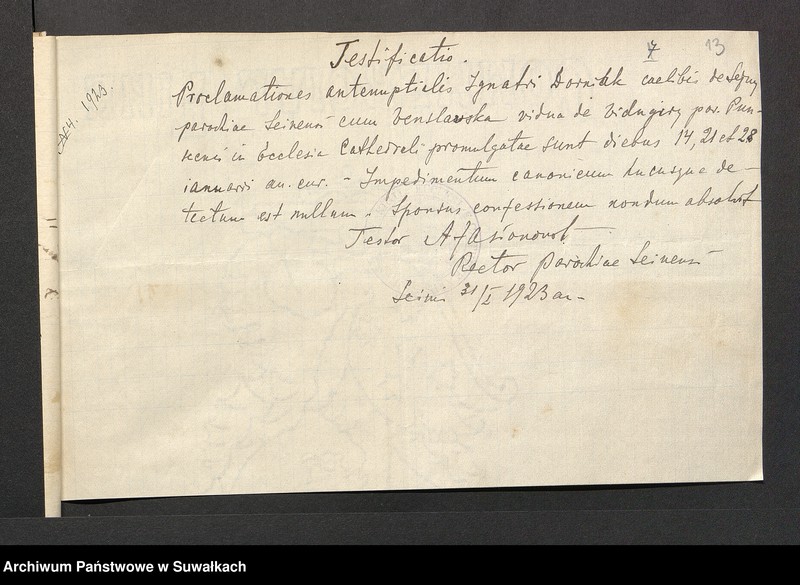 Testificatio.
13
1923.
Proclamationes antenuptialis Ignatri Dorniak caelibis de Sejny
parochiae Seinensi cum Venslavska vidua de Vidugiry par. Pun-
scensi in Ecclesia Cathedrali promulgatae sunt diebus 14, 21 et 28
ianuarii an. cur. - Impedimentum canonicum hucusque de-
tectum est nullum. Sponsus confessionem nondum absolvit
Testor
Rector parochiae Seinensi
Seini 31/I 1923 an-
Archiwum Państwowe w Suwałkach